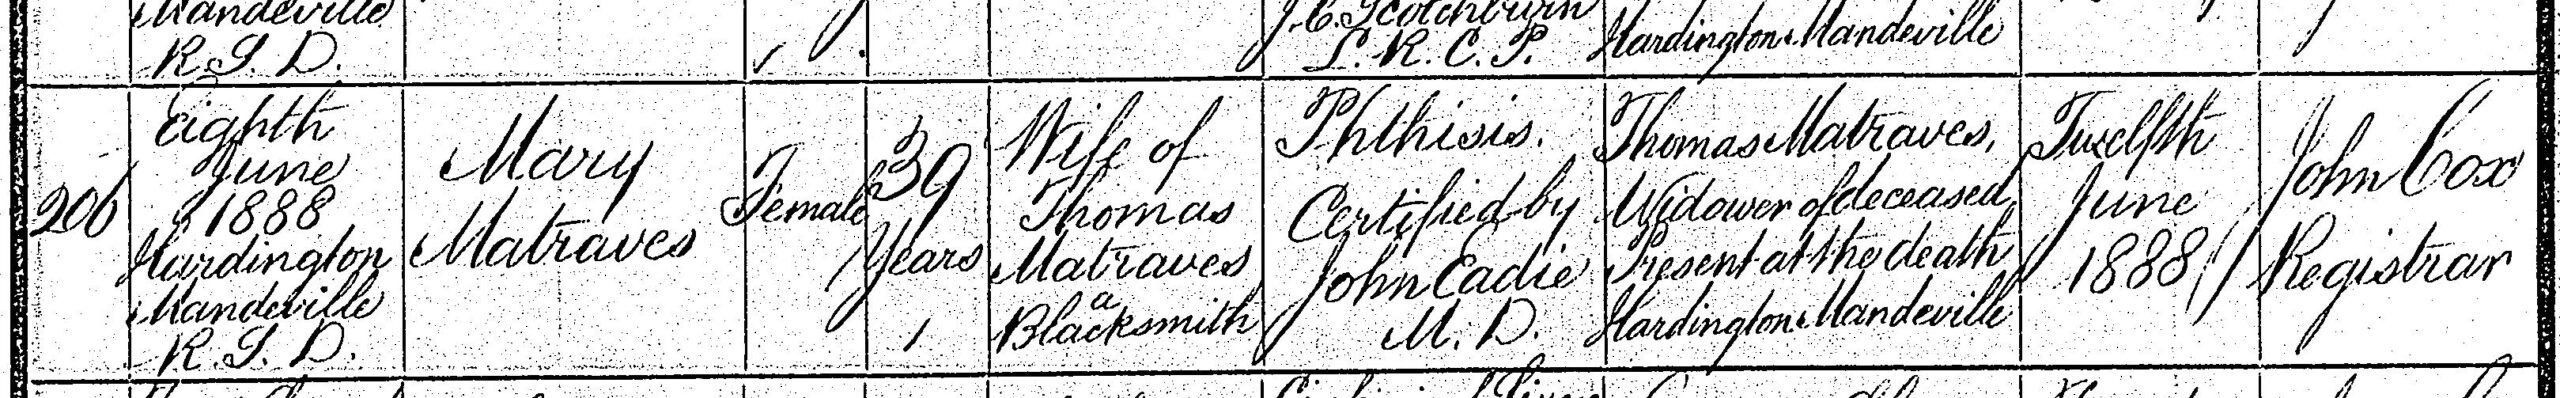 Mandeville
R. S. D.
J. C. Scotchburn
L. R. C. P.
Hardington Mandeville
206
Eighth
June
1888
Hardington
Mandeville
R. S. D.
Mary
Matraves
Female
39
Years
Wife of
Thomas
Matraves
a
Blacksmith
Phthisis.
Certified by
John Eadie
M. D.
Thomas Matraves,
Widower of deceased
Present at the death
Hardington Mandeville
Twelfth
June
1888
John Cox
Registrar